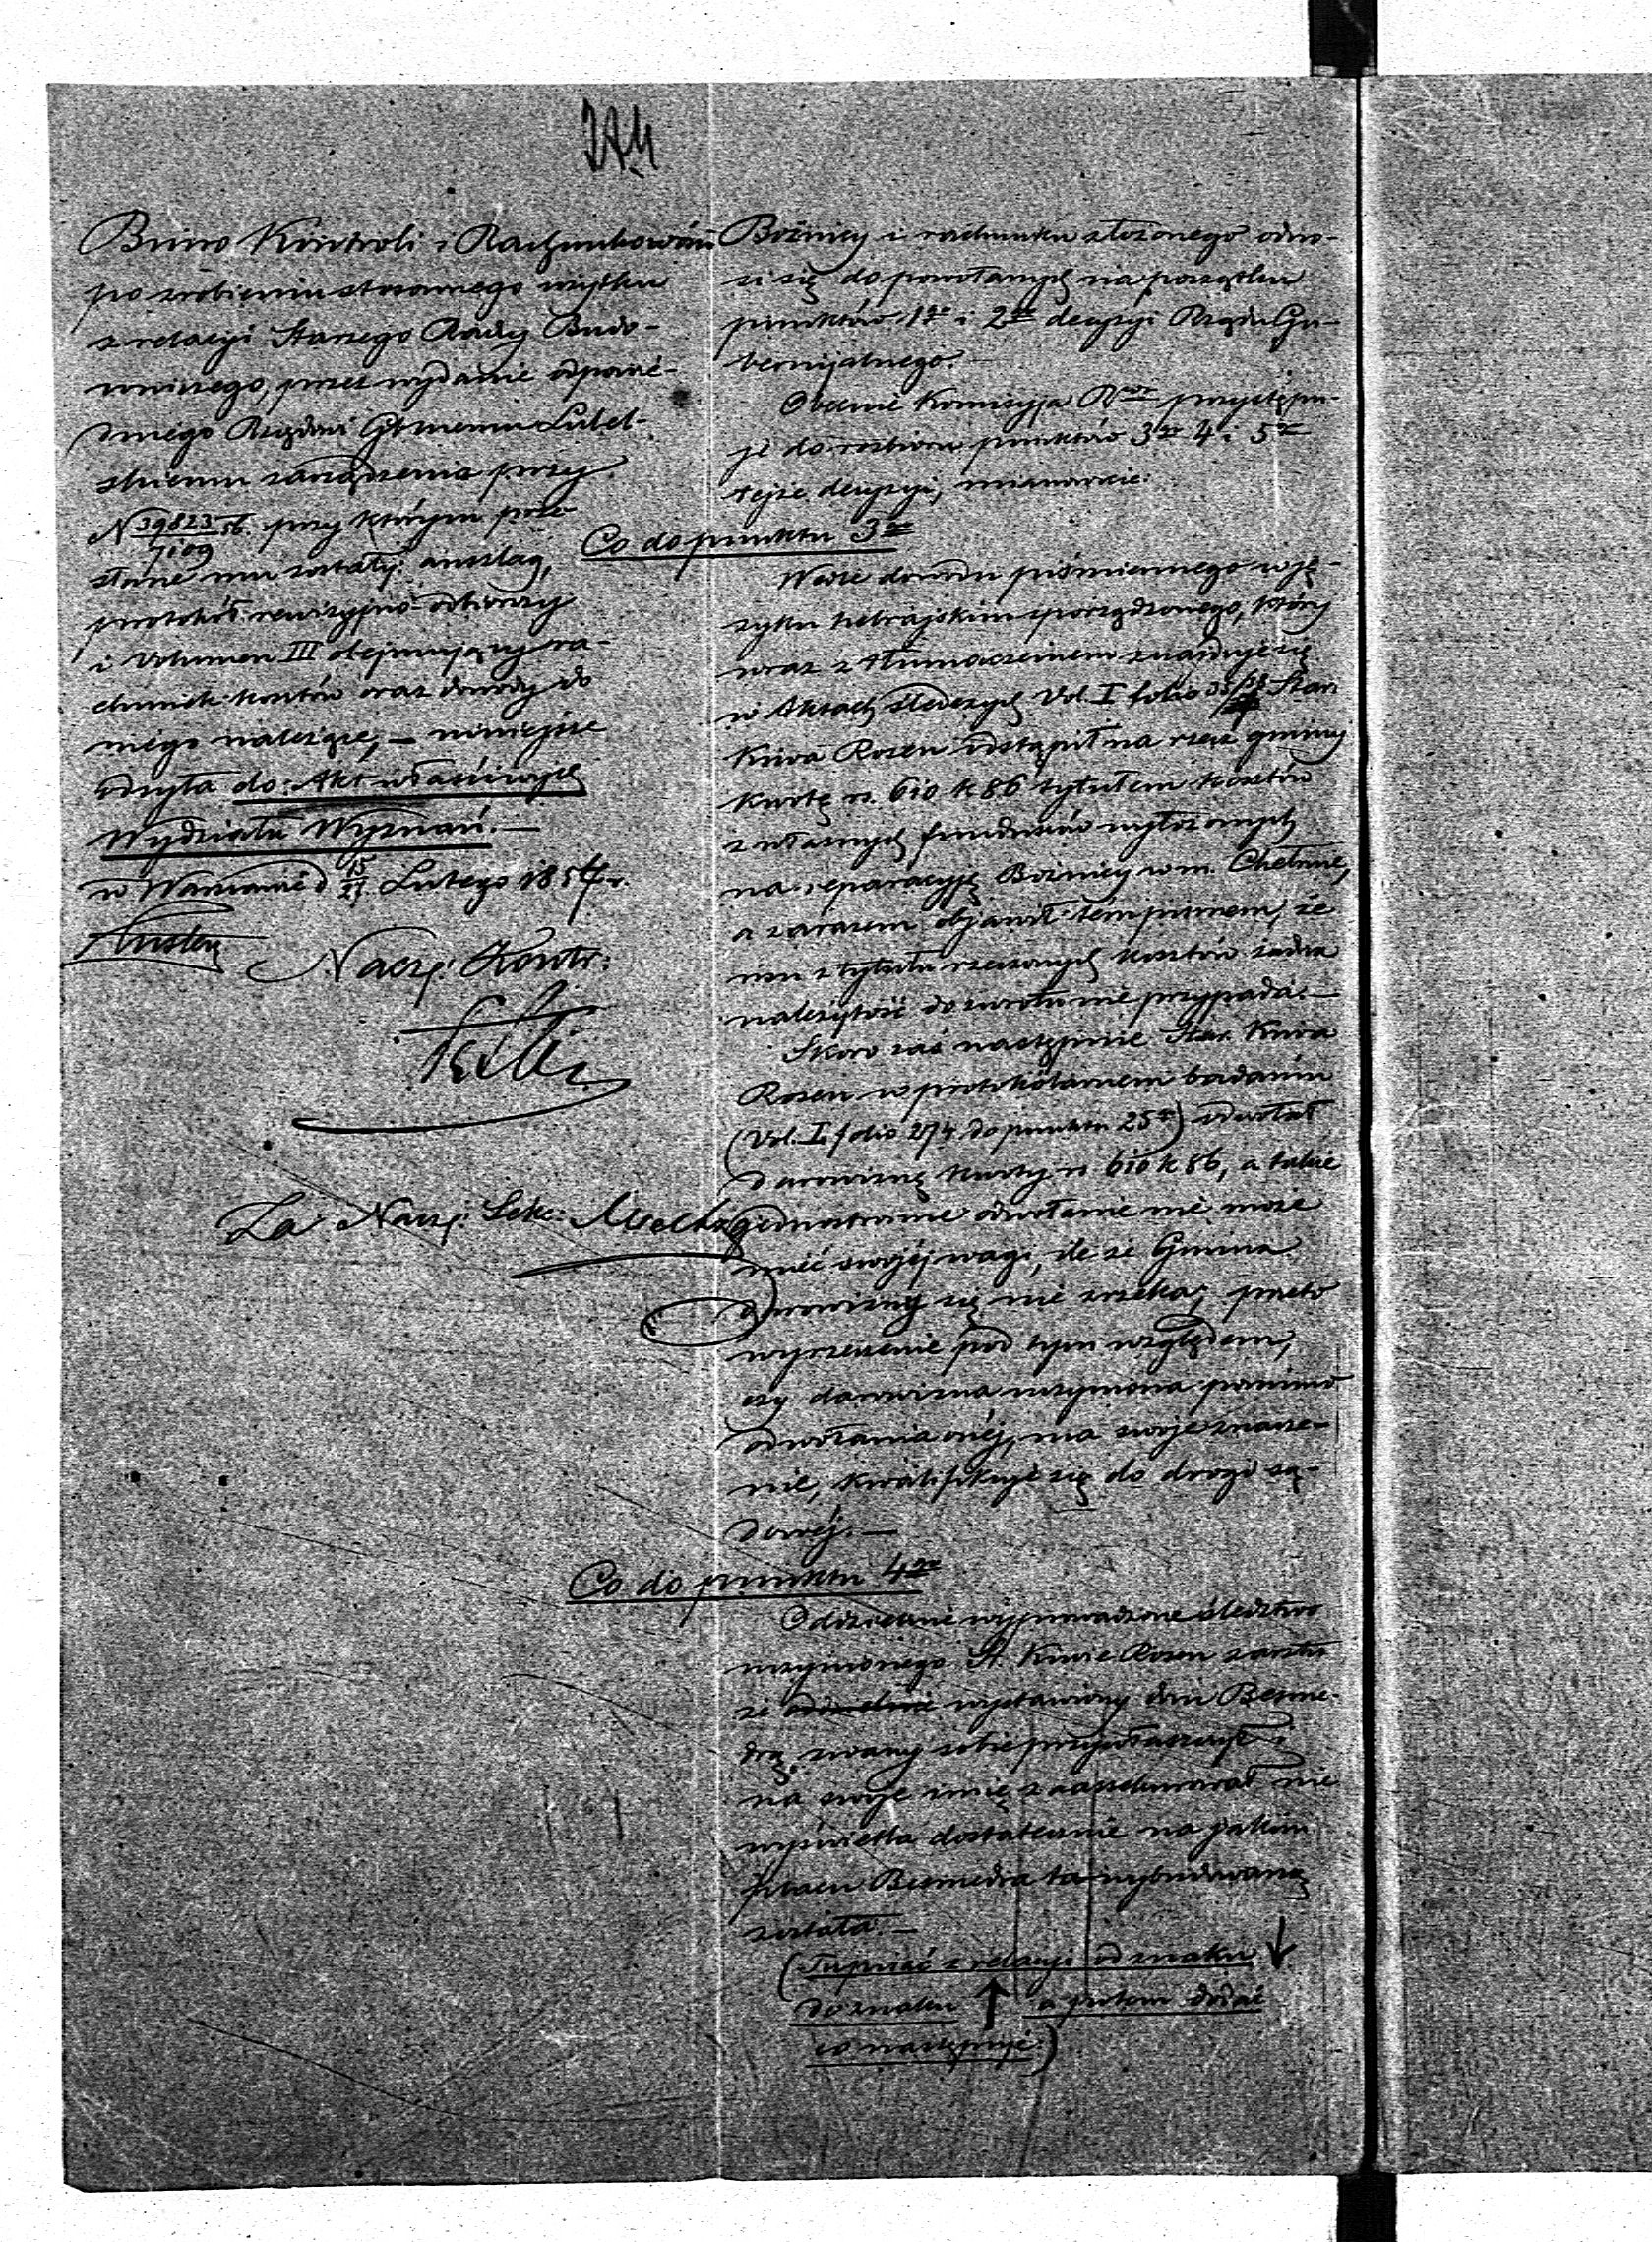 274
Biuro Kontroli i Rachunkowości
po zrobieniu stosownego użytku
z relacyi Starszego Radcy Budo-
wniczego, przez wydanie odpowie-
dniego Rządowi Gbrnemu Lubel-
skiemu zarządzenia przy
N 39823/7109 56. przy którym prze-
słane mu zostały: anszlag,
protokół rewizyjno-odbiorczy
i Volumen III obejmujący ra-
chunek kosztów oraz dowody do
niego należące, — niniejsze
odsyła do: Akt właściwych
Wydziału Wyznań. —
w Warszawie d 15/27 Lutego 1857 r.
Nacz: Kontr:
Za Nacz: Sek:
Bóżnicy i rachunku złożonego odno-
si się do powołanych na początku
punktów 1go i 2go decyzyi Rządu Gu-
bernijalnego. —
Obecnie Komisyja Rwa przystępu-
je do rozbioru punktów 3go 4 i 5go
tejże decyzyi, mianowicie:
Co do punktu 3go
Wedle dowodu piśmiennego w ję-
zyku hebrajskim sporządzonego, który
wraz z tłumaczeniem znajduje się
w Aktach śledczych Vol. I folio Star.
Kiwa Rozen odstąpił na rzecz gminy
kwotę rs. 610 k 86 tytułem kosztów
z własnych funduszów wyłożonych
na reparacyję Bóżnicy w m. Chełmie,
a zarazem objawił tém pismem, że
mu z tytułu rzeczonych kosztów żadna
należytość do zwrotu nie przypada. —
Skoro zaś następnie Star. Kiwa
Rozen w protokólarnem badaniu
(Vol. I. folio 274 do punktu 25go) odwołał
darowiznę kwoty rs 610 k 86, a takie
jednostronne odwołanie nie może
mieć swojéj wagi, ile że Gmina
darowizny się nie zrzeka; przeto
wyrzeczenie pod tym względem,
czy darowizna wzmiona pomimo
odwołania onéj, ma swoje znacze-
nie, kwalifikuje się do drogi są-
dowéj. —
Co do punktu 4go
Oddzielnie wyprowadzone śledztwo
wzmionego St. Kiwie Rozen zarzutu
że oddzielnie wystawiony dom Besme-
drą zwany sobie przywłaszczył i
na swoje imię zaassekurował nie
wyświetla dostatecznie na jakim
placu Besmedra ta wybudowaną
została. —
(Tu pisać z relacyi od znaku ↓
do znaku ↑ a potem dodać
co następuje:)